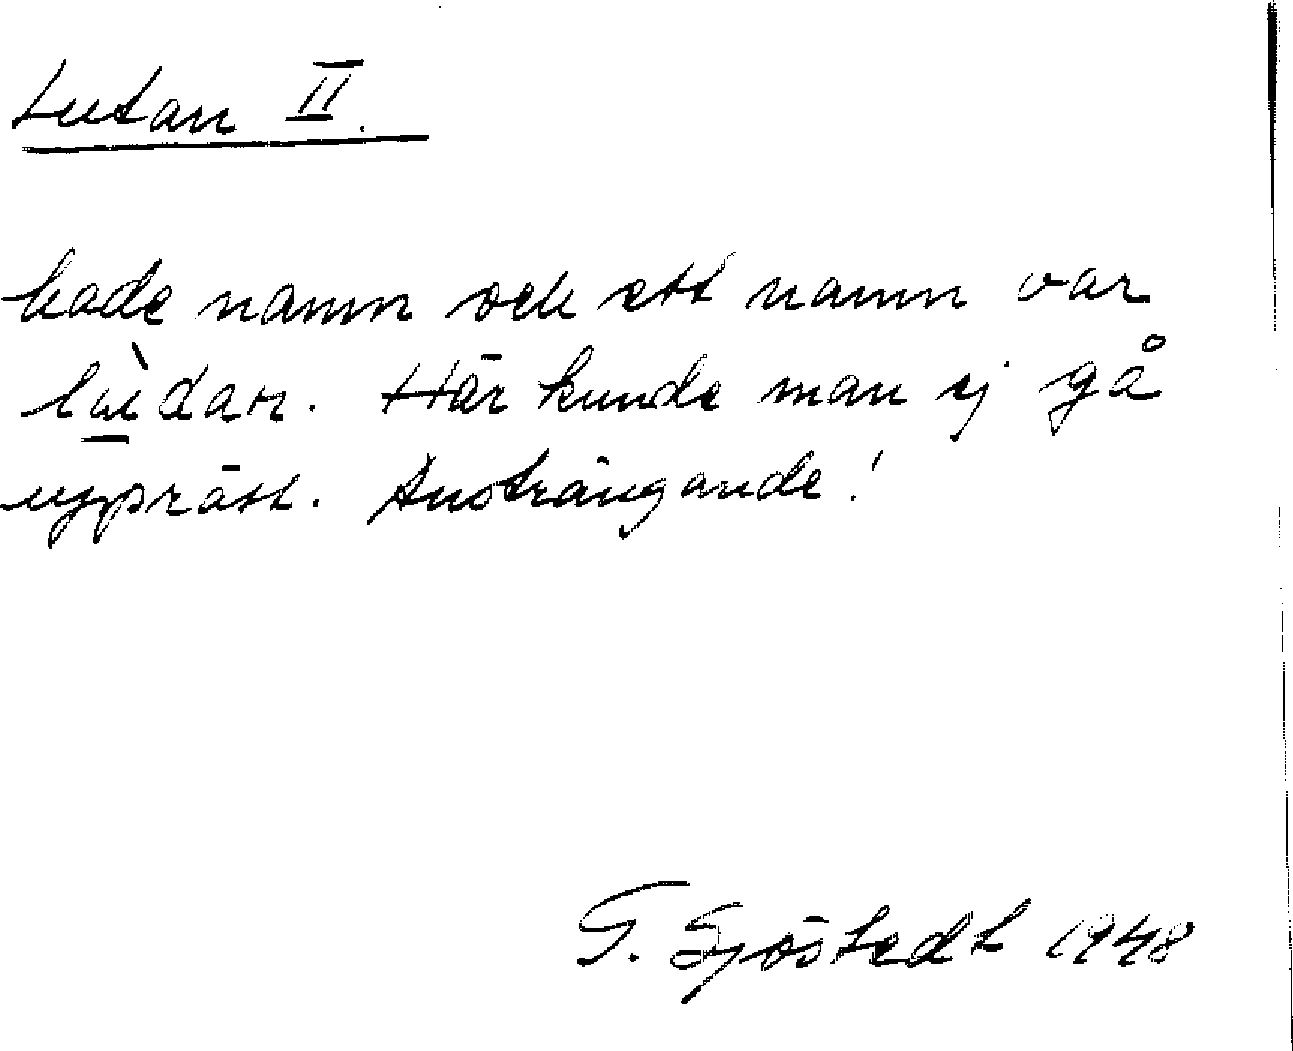 Lutan II.
hade namn och ett namn var
lùdan. Här kunde man ej gå
upprätt. Ansträngande!
G. Sjöstedt 1948